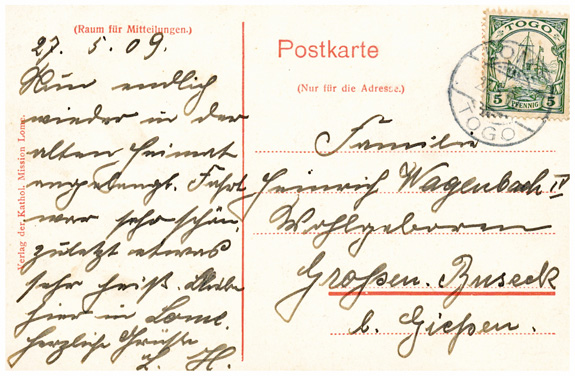 (Raum für Mitteilungen.)
27. 5. 09.
Nun endlich
wieder in der
alten Heimat
angelangt. Fahrt
war sehr schön,
zuletzt etwas
sehr heiß. Bleibe
hier in Lome.
Herzliche Grüße
L. H.
Verlag der Kathol. Mission Lome.
Postkarte
(Nur für die Adresse.)
TOGO
5 PFENNIG 5
TOGO
Familie
Heinrich Wagenbach IV
Wohlgeboren
Großen-Buseck
b. Gießen.